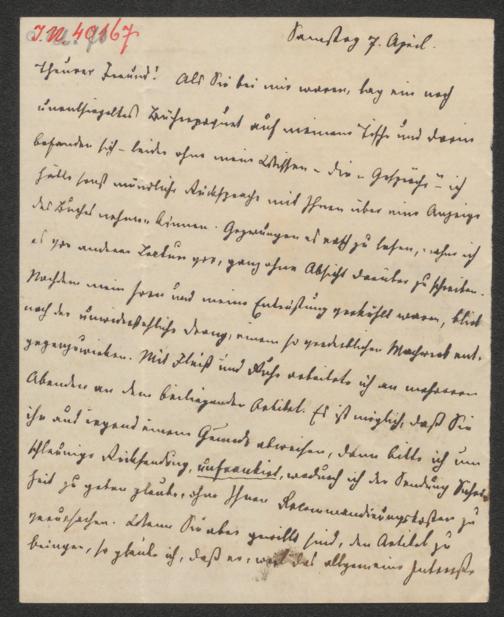 J.N. 49167
Samstag 7. April.
Theurer Freund! Als Sie bei mir waren, lag ein noch
unentsiegeltes Bücherpaquet auf meinem Tische und darin
befanden sich – leider ohne mein Wissen – die „Gespräche“ – ich
hätte sonst mündliche Rücksprache mit Ihnen über eine Anzeige
des Buches nehmen können. Gezwungen es rasch zu lesen, nahm ich
es vor anderer Lectüre vor, ganz ohne Absicht darüber zu schreiben.
Nachdem mein Zorn und meine Entrüstung verkühlt waren, blieb
noch der unwiderstehliche Drang, einem so verderblichen Machwerk ent-
gegenzuwirken. Mit Fleiß und Ruhe arbeitete ich an mehreren
Abenden an dem beiliegenden Artikel. Es ist möglich, daß Sie
ihn aus irgend einem Grunde abweisen, dann bitte ich um
schleunige Rücksendung, unfrankirt, wodurch ich der Sendung Sicher-
heit zu geben glaube, ohne Ihnen Recommandirungskosten zu
verursachen. Wenn Sie aber gewillt sind, den Artikel zu
bringen, so glaube ich, daß er, weil das allgemeine Interesse